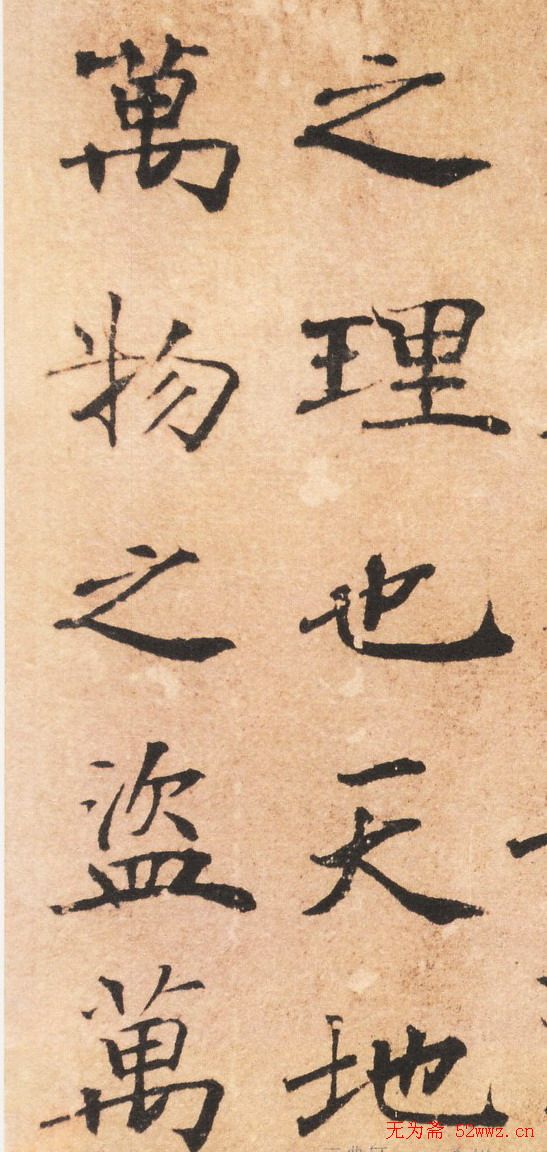 之理也天地
萬物之盜萬
无为斋 52wwz.cn